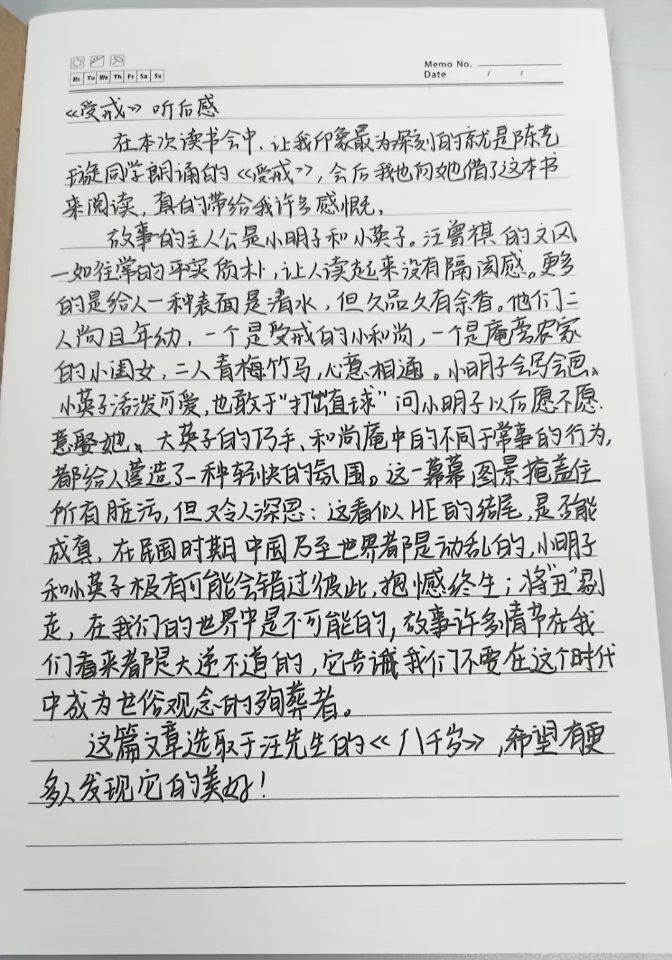 Memo No.
Mo Tu We Th Fr Sa Su
Date / /
《受戒》听后感
在本次读书会中，让我印象最为深刻的就是陈艺
璇同学朗诵的《受戒》，会后我也向她借了这本书
来阅读，真的带给我许多感慨。
故事的主人公是小明子和小英子。汪曾祺的文风
一如往常的平实质朴，让人读起来没有隔阂感。更多
的是给人一种表面是清水，但久品久有余香。他们二
人尚且年幼，一个是受戒的小和尚，一个是庵旁农家
的小闺女，二人青梅竹马，心意相通。小明子会写会画、
小英子活泼可爱，也敢于“打出直球”问小明子以后愿不愿
意娶她、大英子的巧手、和尚庵中的不同于常事的行为，
都给人营造了一种轻快的氛围。这一幕幕图景掩盖住
所有脏污，但又令人深思：这看似HE的结尾，是否能
成真，在民国时期中国乃至世界都是动乱的，小明子
和小英子极有可能会错过彼此，抱憾终生；将“丑”剔
走，在我们的世界中是不可能的，故事许多情节在我
们看来都是大逆不道的，它告诫我们不要在这个时代
中成为世俗观念的殉葬者。
这篇文章选取于汪先生的《八千岁》，希望有更
多人发现它的美好！